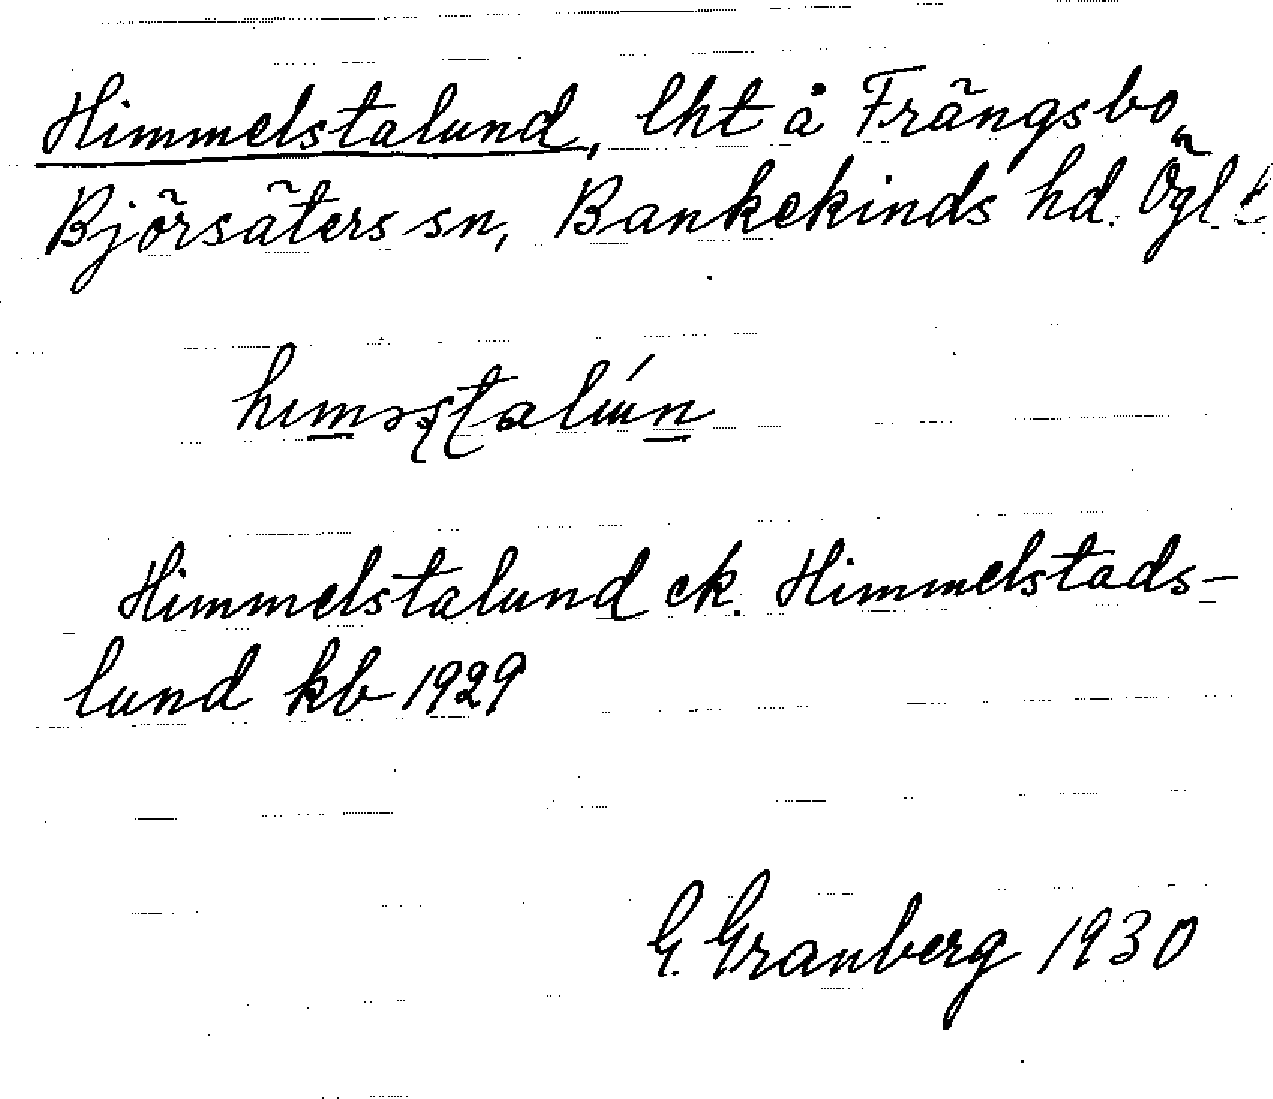 Himmelstalund, lht å Frängsbo,
Björsäters sn, Bankekinds hd. Ögl.
Himmelstalund ek. Himmelstads-
lund kb 1929
G. Granberg 1930